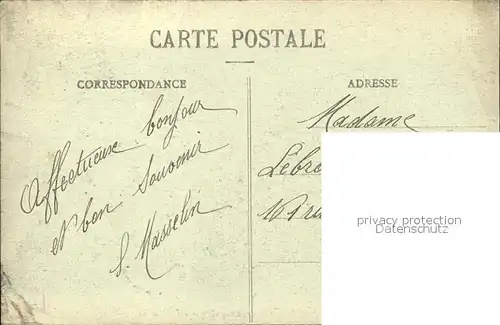 CARTE POSTALE
CORRESPONDANCE
ADRESSE
Affectueux bonjour
et bon souvenir
S. Masselin
Madame
Lebre
privacy protection
Datenschutz